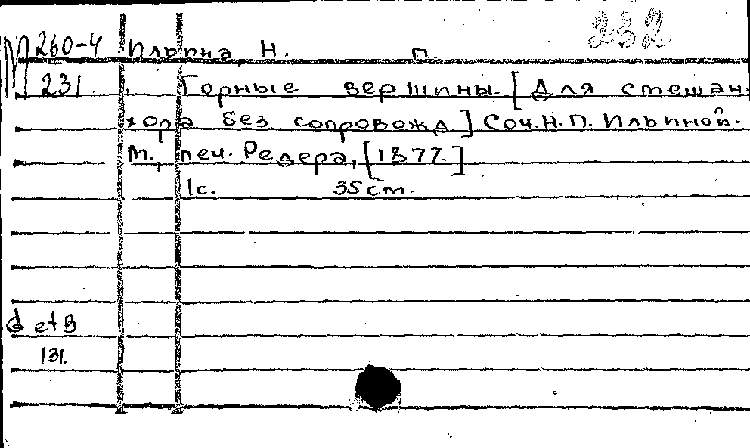 232
М 260-4 Ильина, Н. П.
231 Горные вершины. [Для смешан.
хора без сопровожд.] Соч. Н. П. Ильиной.
М., печ. Редера, [1877]
1с. 35 см.
d et B
131.